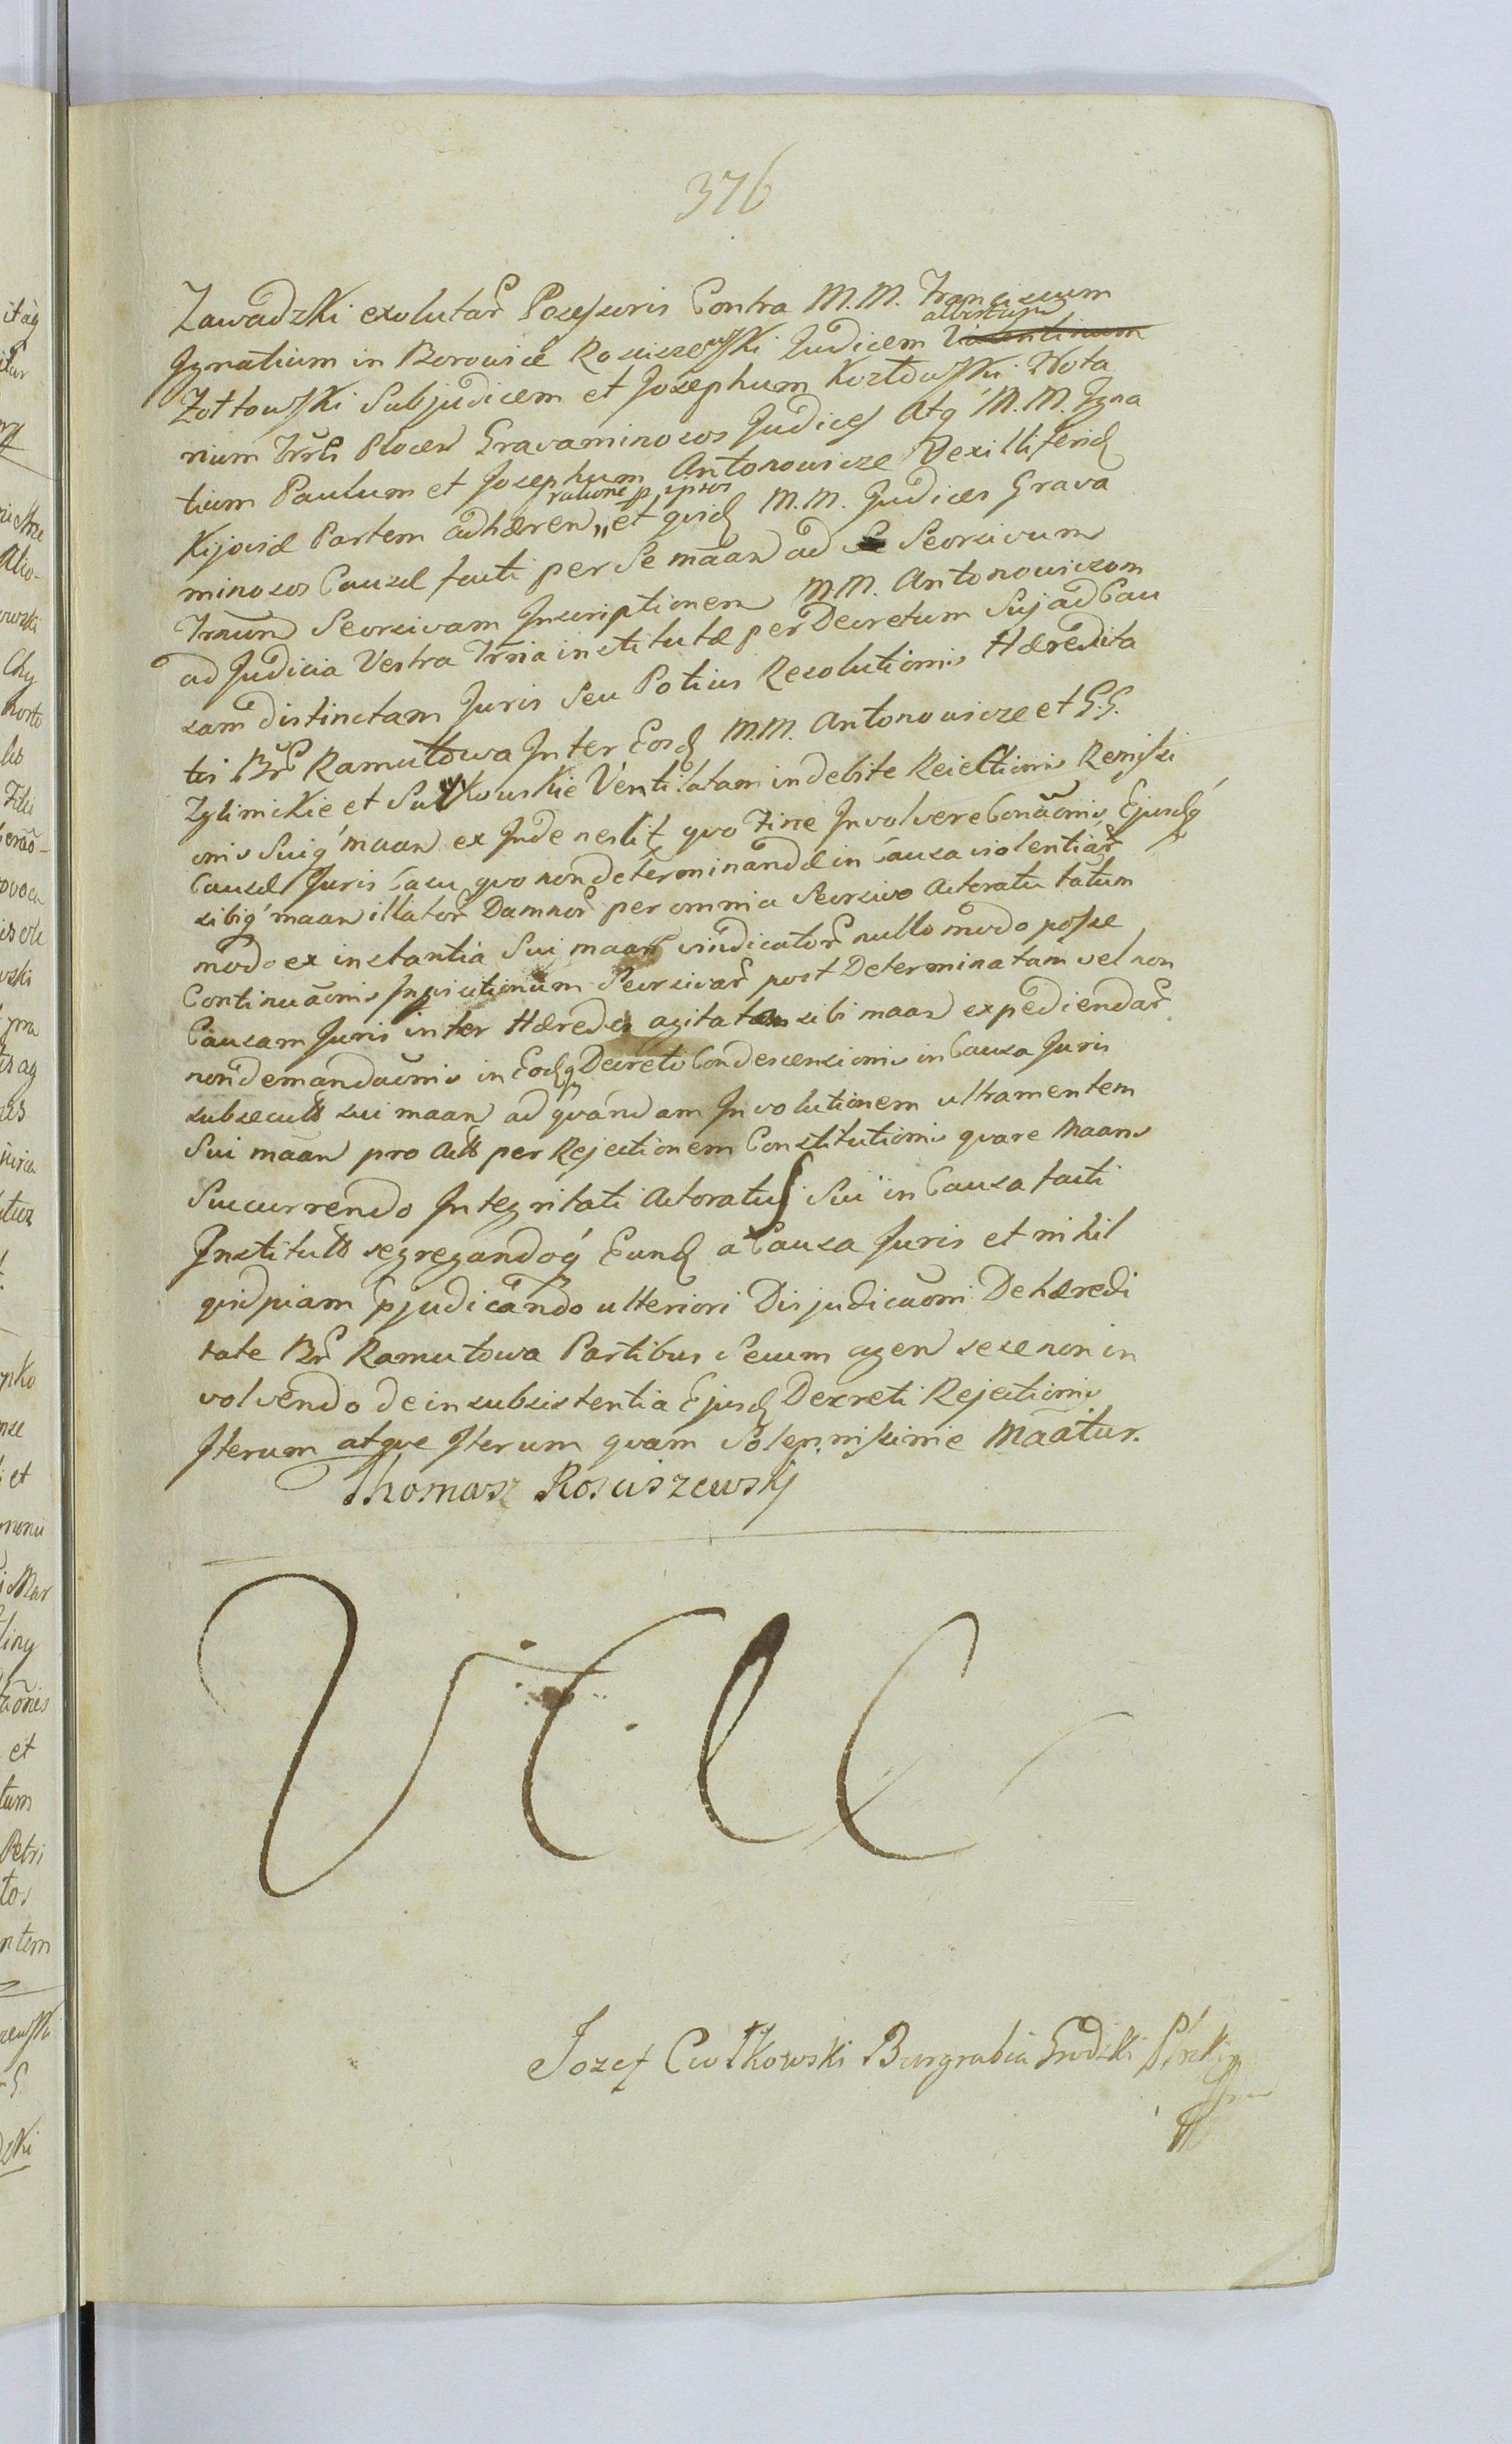 376
Zawadzki exolutar Possessoris Contra M.M. Franciscum
albertum
Ignatium in Borowice Rosciszewski Judicem Valentinum
Żołtowski Subjudicem et Josephum Kozłowski Nota
rium Trrlis Plocen Gravaminosos Judices Atq M.M. Igna
tium Paulum et Josephum Antonowicze Vexilliferid
ratione p ipsos
Kijoviæ Partem adhæren,, et quid M.M. Judices Grava
minosos Causæ facti per Se maan ad Seorsivum
Trnum Seorsivam Inscriptionem MM. Antonowiczom
ad Judicia Vestra Trria institutæ per Decretum Suj ad Cau
sam distinctam Juris Seu Potius Resolutionis Hæredita
tis Br Ramutowa Inter Eosd M.M. Antonowicze et G.G.
Zglinickie et Sutkowskie Ventilatam indebite Reiectionis Remissi
onis Suiq maan ex Inde nesit quo Fine Involvere Conaonis Ejusdq
Causæ Juris Casu quo non determinandæ in Causa violentiar
sibiq maan illator Damnor per omnia Seorsivo Actoratu tatum
modo ex instantia Sui maan vindicator nullo modo posse
Continuaonis Inscriptionum Seorsivar post Determinatam vel non
Causam Juris inter Hæredes agitatam sibi maan expediendar
non demandaonis in Eodq Decreto Condescensionis in Causa Juris
subsecuto sui maan ad quandam Involutionem ultra mentem
Sui maan pro Acto per Rejectionem Constitutionis quare Maans
Succurrendo Integritati Actoratus Sui in Causa facti
Instituto segregandoq Eund a Causa Juris et nihil
quidpiam pjudicando ulteriori Disjudicaoni De hæredi
tate Br Ramutowa Partibus Secum agen sese non in
volvendo de insubsistentia Ejusd Decreti Rejectionis
Iterum atque Iterum quam Solennissime Maatur.
Thomasz Rosciszewskj
Jozef Cwtkowski Burgrabia Grodzki Płocki